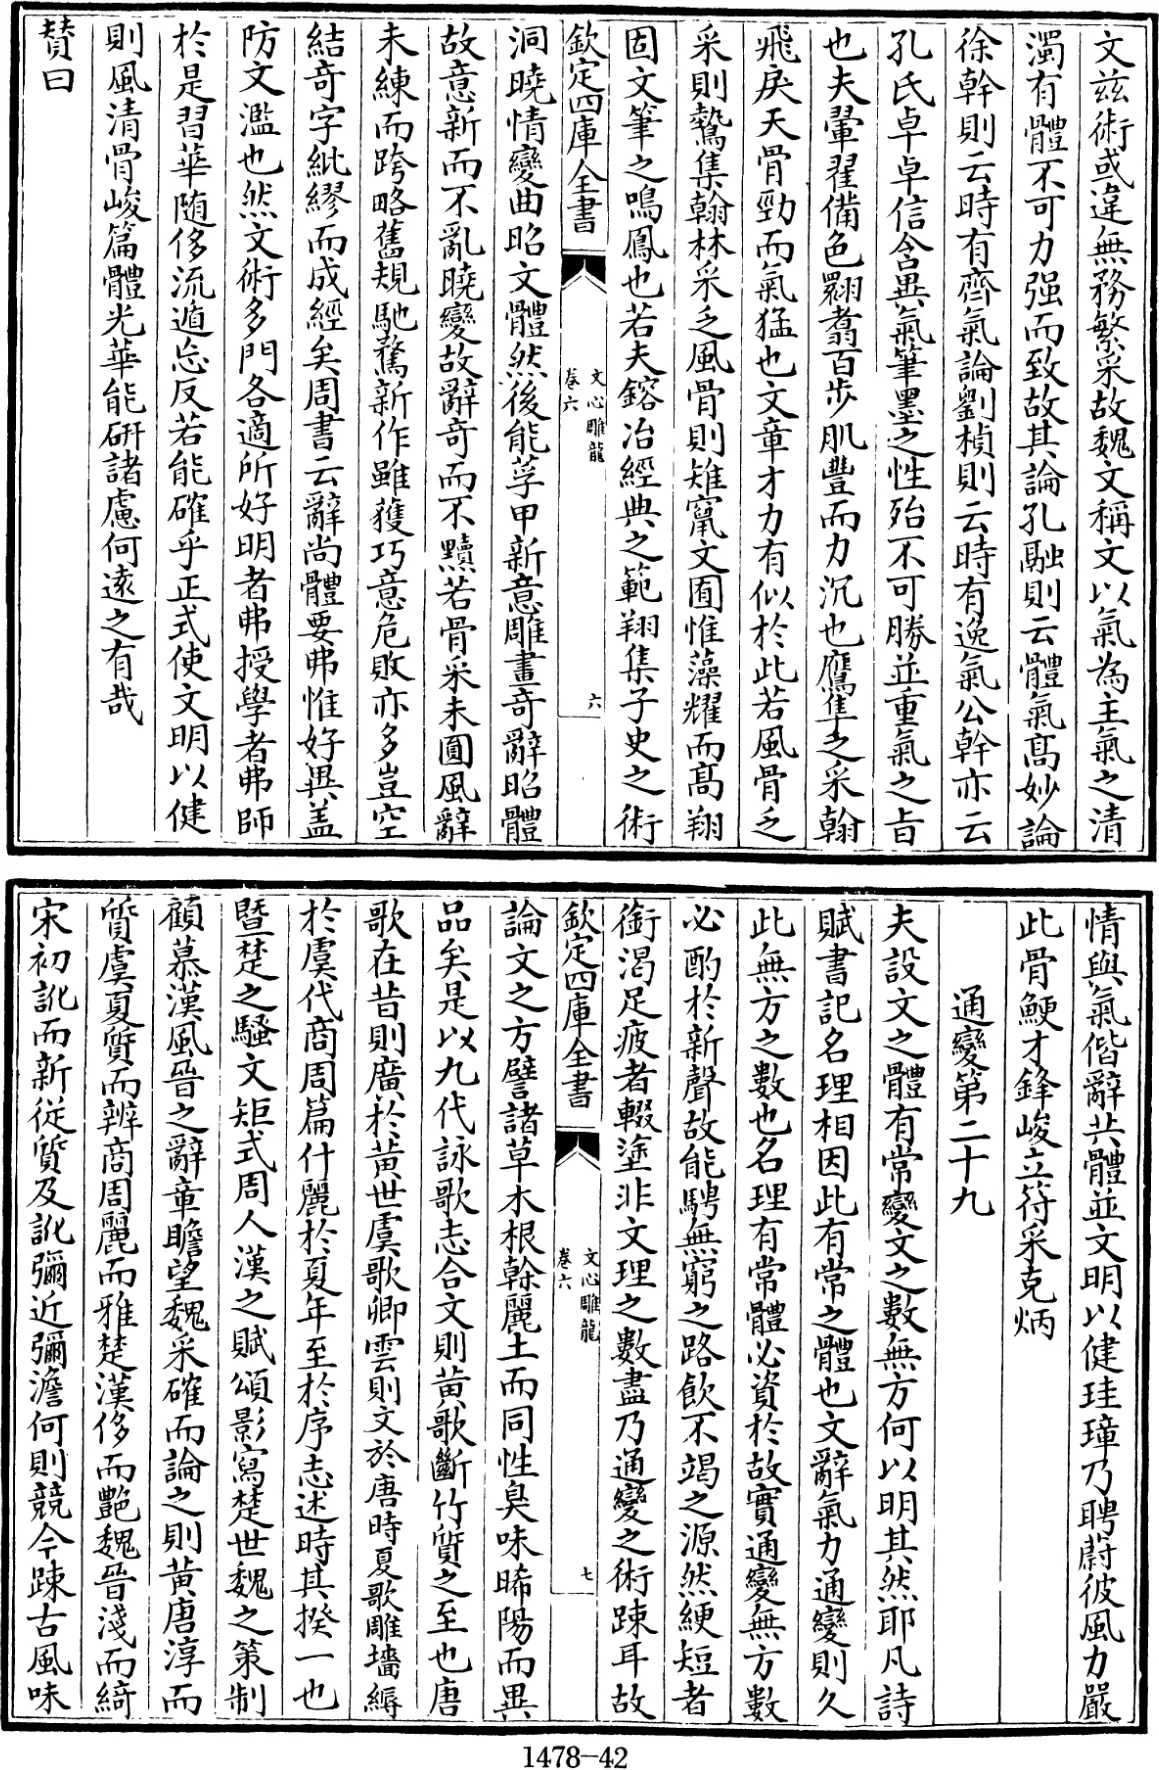 文兹術或違無務繁采故魏文稱文以氣為主氣之清
濁有體不可力强而致故其論孔融則云體氣髙妙論
徐幹則云時有齊氣論劉楨則云時有逸氣公幹亦云
孔氏卓卓信含異氣筆墨之性殆不可勝並重氣之旨
也夫翬翟備色翾翥百步肌豐而力沉也鷹隼之采翰
飛戾天骨勁而氣猛也文章才力有似於此若風骨乏
采則鷙集翰林采乏風骨則雉竄文囿惟藻耀而髙翔
固文筆之鳴鳳也若夫鎔冶經典之範翔集子史之術
欽定四庫全書
文心雕龍
卷六
六
洞曉情變曲昭文體然後能莩甲新意雕畫奇辭昭體
故意新而不亂曉變故辭奇而不黷若骨采未圓風辭
未練而跨略舊規馳騖新作雖獲巧意危敗亦多豈空
結奇字紕繆而成經矣周書云辭尚體要弗惟好異盖
防文濫也然文術多門各適所好明者弗授學者弗師
於是習華随侈流遁忘反若能確乎正式使文明以健
則風清骨峻篇體光華能研諸慮何遠之有哉
賛曰
情與氣偕辭共體並文明以健珪璋乃聘蔚彼風力嚴
此骨鯁才鋒峻立符采克炳
通變第二十九
夫設文之體有常變文之數無方何以明其然耶凡詩
賦書記名理相因此有常之體也文辭氣力通變則久
此無方之數也名理有常體必資於故實通變無方數
必酌於新聲故能騁無窮之路飲不竭之源然綆短者
銜渴足疲者輟塗非文理之數盡乃通變之術踈耳故
欽定四庫全書
文心雕龍
卷六
七
論文之方譬諸草木根榦麗土而同性臭味晞陽而異
品矣是以九代詠歌志合文則黄歌斷竹質之至也唐
歌在昔則廣於黄世虞歌卿雲則文於唐時夏歌雕墻縟
於虞代商周篇什麗於夏年至於序志述時其揆一也
暨楚之騷文矩式周人漢之賦頌影寫楚世魏之策制
顧慕漢風晉之辭章瞻望魏采確而論之則黄唐淳而
質虞夏質而辨商周麗而雅楚漢侈而艷魏晉淺而綺
宋初訛而新從質及訛彌近彌澹何則競今踈古風味
1478-42